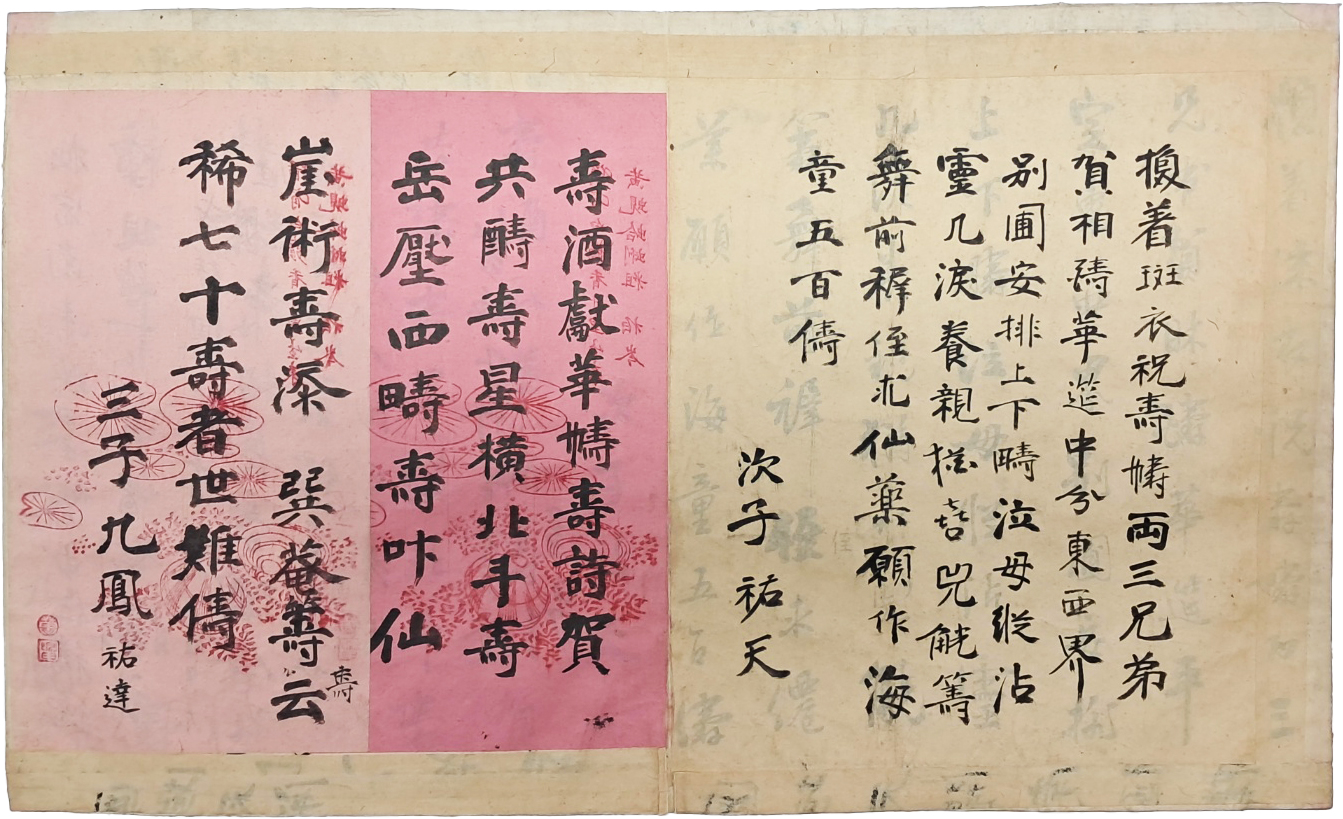 換着斑衣祝壽嶹両三兄弟
賀相禱華莚中分東西界
別圃安排上下疇泣母縱沾
靈几淚養親猶喜兕觥籌
舞前稺侄求仙藥願作海
童五百儔
次子祐天
壽酒獻華幬壽詩賀
共醻壽星橫北斗壽
岳壓西疇壽咔仙
崖術壽添 巽菴籌云
壽
稀七十壽者世難儔
三子九鳳祐達